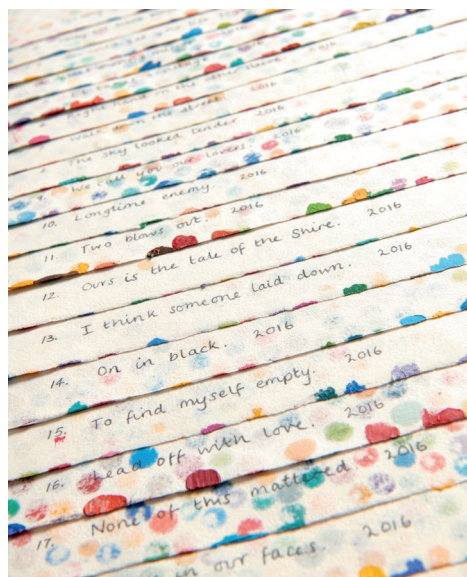 Right hand on the other sleeve. 2016
Walk down the street 2016
8. The sky looked tender 2016
9. We call you our lovers. 2016
10. Longtime enemy 2016
11. Two blows out. 2016
12. Ours is the tale of the Shire. 2016
13. I think someone laid down. 2016
14. On in black. 2016
15. To find myself empty. 2016
16. Lead off with love. 2016
17. None of this mattered 2016
in our faces. 2016